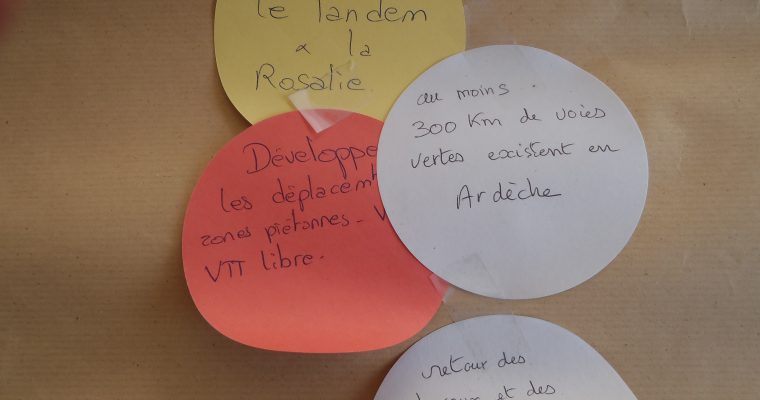 le Tandem
& la
Rosalie
Développe
les déplacemt
zones piétonnes - V
VTT libre.
au moins
300 Km de voies
vertes existent en
Ardèche
retour des
et des